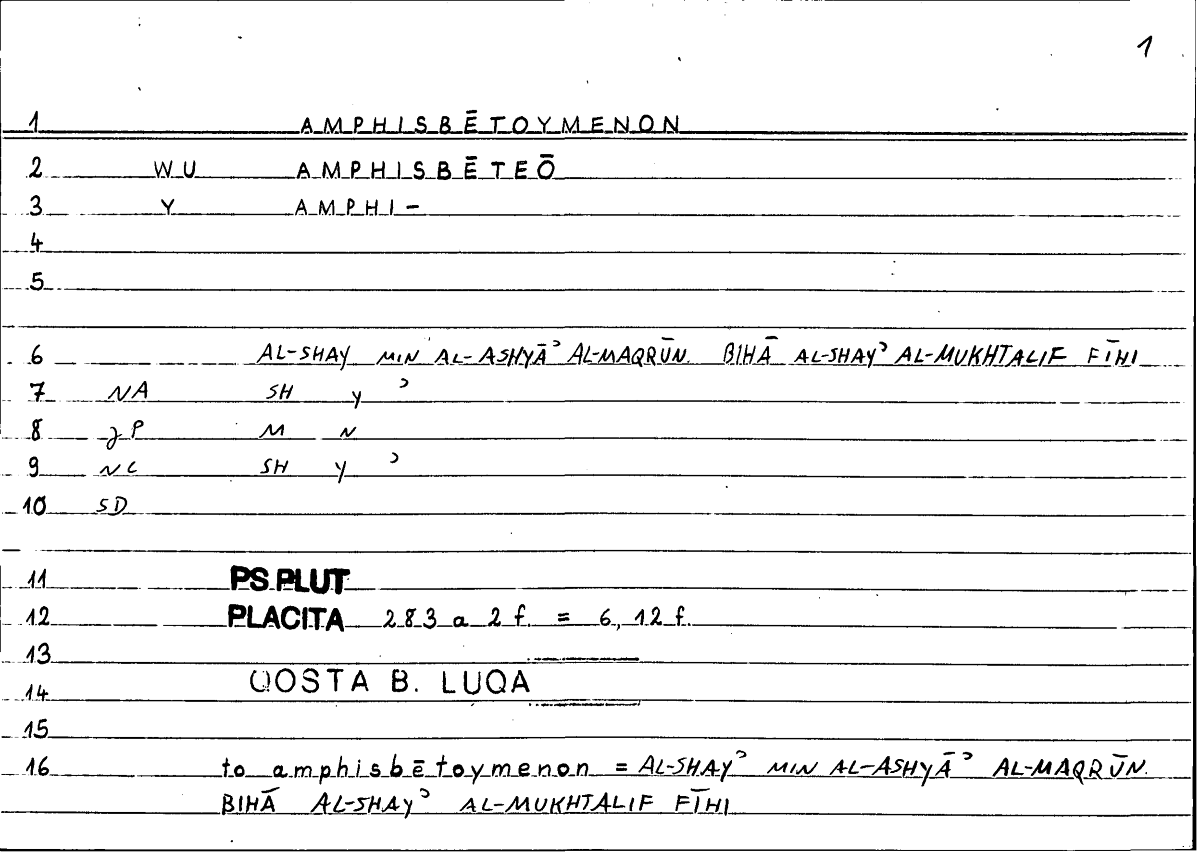 1
1 AMPHISBĒTOYMENON
2 WU AMPHISBĒTEŌ
3 Y AMPHI-
4
5
6 AL-SHAY MIN AL-ASHYĀʾ AL-MAQRŪN BIHĀ AL-SHAYʾ AL-MUKHTALIF FĪHI
7 NA SH Y ʾ
8 P M N
9 NC SH Y ʾ
10 SD
11 PS.PLUT
12 PLACITA 283 a 2 f. = 6, 12 f.
13
14 QOSTA B. LUQA
15
16 to amphisbētoymenon = AL-SHAYʾ MIN AL-ASHYĀʾ AL-MAQRŪN
BIHĀ AL-SHAYʾ AL-MUKHTALIF FĪHI